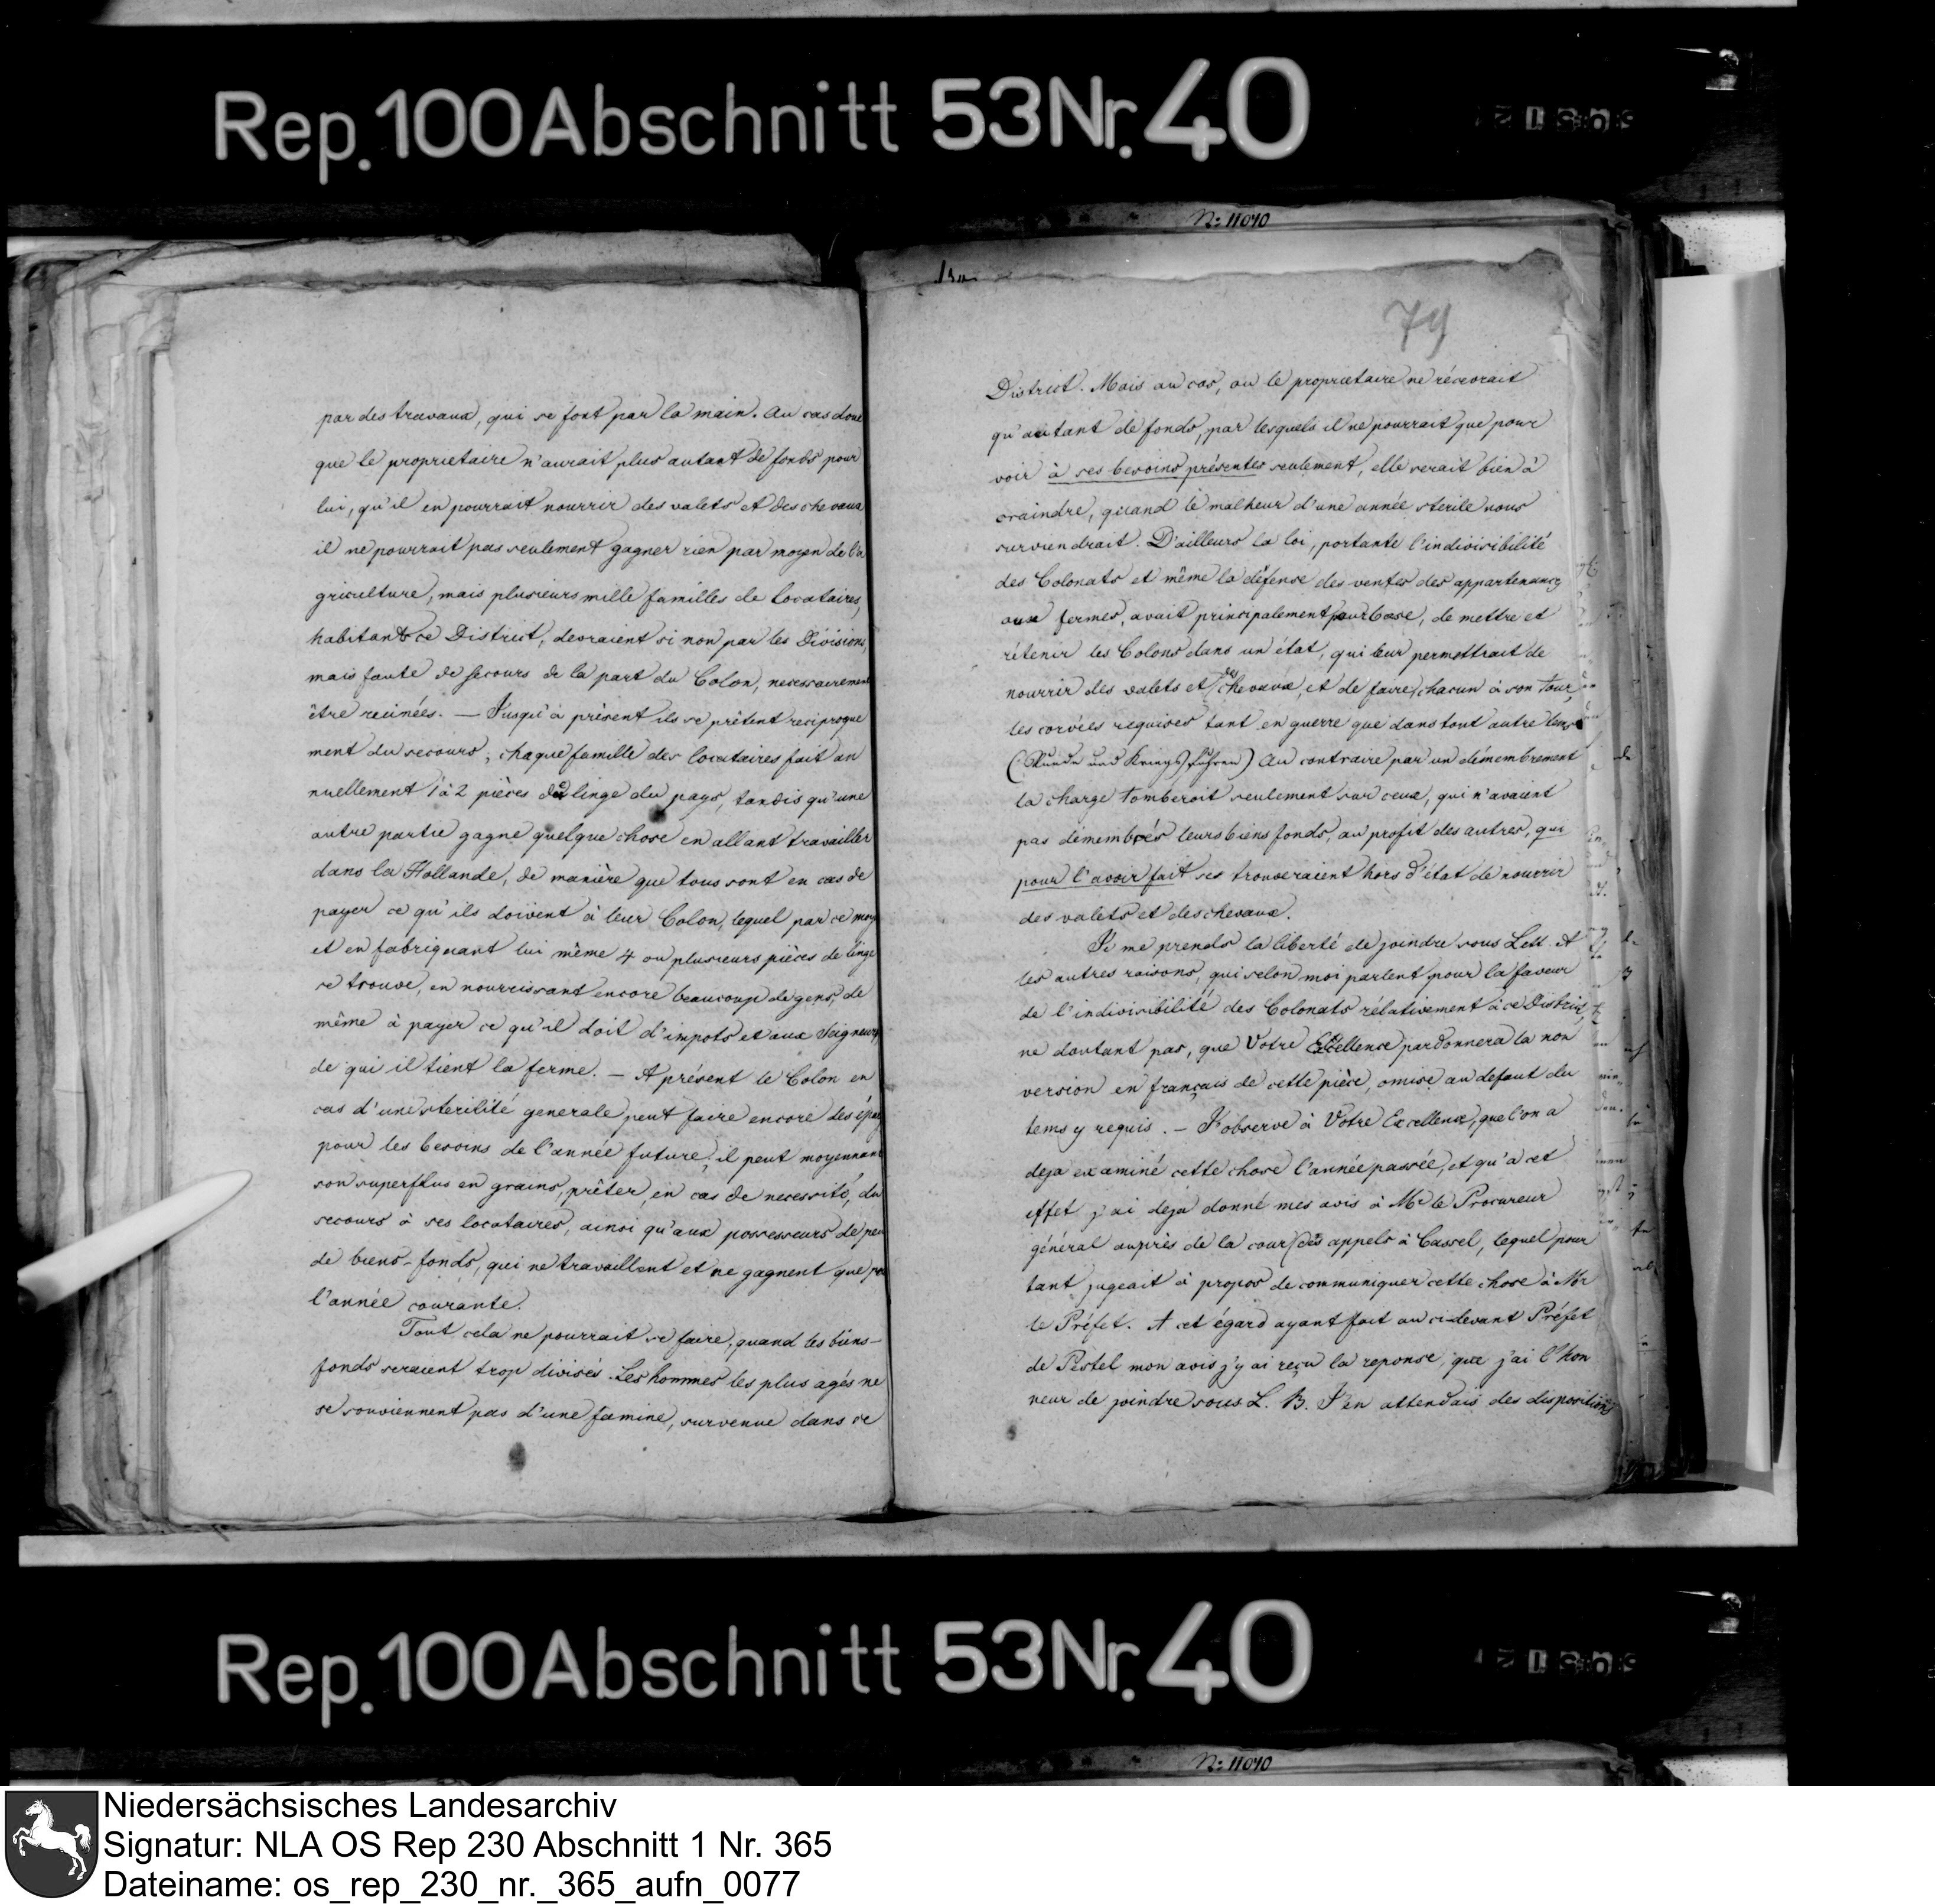 Rep. 100 Abschnitt 53 Nr. 40
N: 11040
par des travaux, qui se font par la main. Au cas donc
que le proprietaire n'aurait plus autant de fonds pour
lui, qu'il en pourrait nourrir des valets et des chevaux
il ne pourrait pas seulement gagner rien par moyen de l'a
griculture, mais plusieurs mille familles de locataires,
habitant ce District, devraient si non par les Divisions,
mais faute de secours de la part du Colon, necessairement
être ruinées. — Jusqu'à présent ils se prêtent reciproque
ment du secours; chaque famille des locataires fait an
nuellement 1 à 2 pièces de linge du pays, tandis qu'une
autre partie gagne quelque chose en allant travailler
dans la Hollande, de manière que tous sont en cas de
payer ce qu'ils doivent à leur Colon, lequel par ce moy
et en fabriquant lui même 4 ou plusieurs pièces de linge
se trouve, en nourrissant encore beaucoup de gens, de
même à payer ce qu'il doit d'impots et aux Seigneurs,
de qui il tient la ferme. — A présent le Colon en
cas d'une sterilité generale peut faire encore des épar
pour les besoins de l'année future, il peut moyennant
son superflus en grains, prêter, en cas de necessité, du
secours à ses locataires, ainsi qu'aux possesseurs de peu
de biens-fonds, qui ne travaillent et ne gagnent que po
l'année courante.
Tout cela ne pourrait se faire, quand les biens-
fonds seraient trop divisés. Les hommes les plus agés ne
se souviennent pas d'une famine, survenue dans ce
79
District. Mais au cas, ou le proprietaire ne récevrait
qu'autant de fonds, par lesquels il ne pourrait que pour
voir à ses besoins présentes seulement, elle serait bien à
craindre, quand le malheur d'une année sterile nous
surviendrait. D'ailleurs la loi, portante l'indivisibilité
des Colonats et même la défense des ventes des appartenances
aux fermes, avait principalement pour base, de mettre et
rétenir les Colons dans un état, qui leur permettrait de
nourrir des valets et des chevaux, et de faire, chacun à son tour,
les corvées requises tant en guerre que dans tout autre tems
(Runde und Kriegs fuhren) Au contraire par un démembrement
la charge tomberoit seulement sur ceux, qui n'avaient
pas démembrés leurs biens fonds, au profit des autres, qui
pour l'avoir fait ses trouveraient hors d'état de nourrir
des valets et des chevaux.
Je me prends la liberté de joindre sous Litt. A
les autres raisons, qui selon moi parlent pour la faveur
de l'indivisibilité des Colonats rélativement à ce District,
ne doutant pas, que Votre Excellence pardonnera la non
version en français de cette pièce, omise au defaut du
tems y requis. — J'observe à Votre Excellence, que l'on a
deja examiné cette chose l'année passée, et qu'à cet
effet j'ai deja donné mes avis à Mr le Procureur
général auprès de la cour des appels à Cassel, lequel pour
tant jugeait à propos de communiquer cette chose à Mr
le Préfet. A cet égard ayant fait au ci-devant Préfet
de Pestel mon avis j'y ai reçu la reponse, que j'ai l'hon
neur de joindre sous L. B. J'en attendais des dispositions
Rep. 100 Abschnitt 53 Nr. 40
N: 11040
Niedersächsisches Landesarchiv
Signatur: NLA OS Rep 230 Abschnitt 1 Nr. 365
Dateiname: os_rep_230_nr._365_aufn_0077